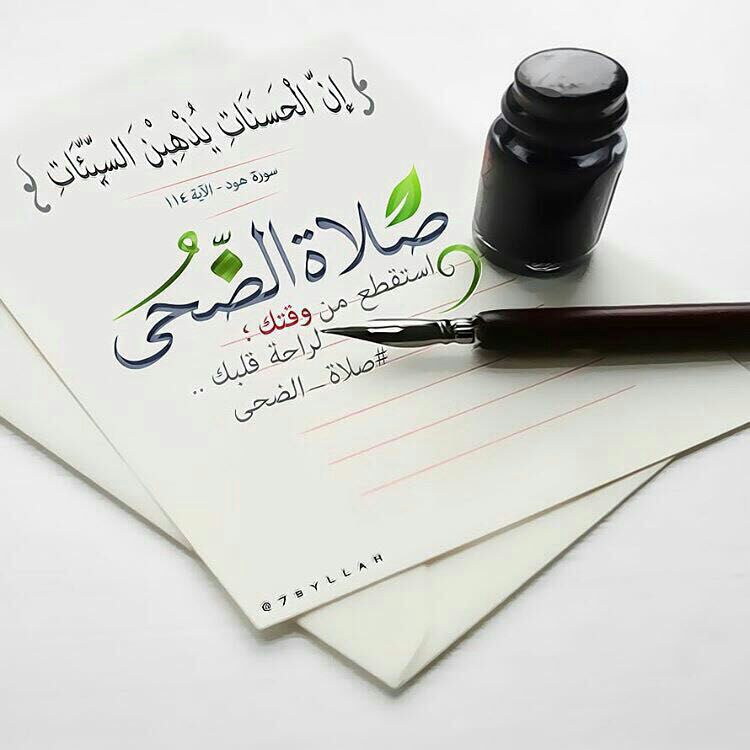 ﴿ إِنَّ الْحَسَنَاتِ يُذْهِبْنَ السَّيِّئَاتِ ﴾
سورة هود - الآية ١١٤
صلاة الضُّحى
استقطع من وقتك ؛
لراحة قلبك ..
#صلاة_الضحى
@7BYLLAH